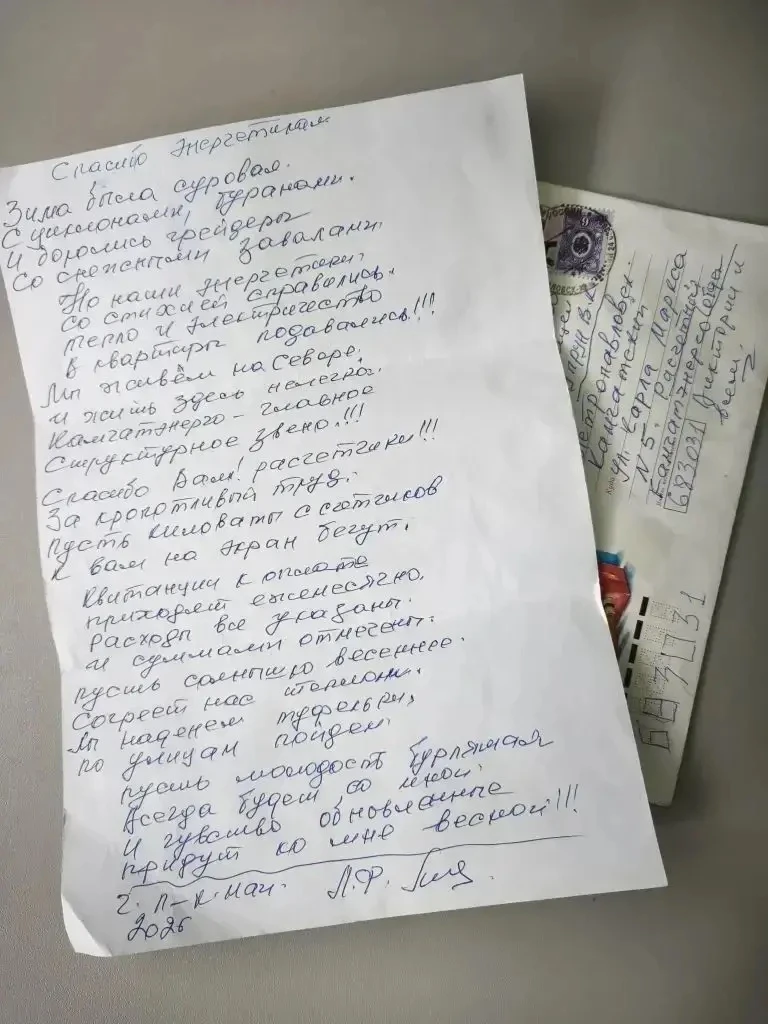 Спасибо Энергетикам
Зима была суровая.
С циклонами, буранами.
И боролись грейдеры
Со снежными завалами.
Но наши энергетики.
Со стихией справились.
Тепло и электричество
В квартиры подавались!!!
Мы живём на Севере.
и жить здесь нелегко.
Камчатэнерго - главное
Структурное звено!!!
Спасибо Вам! расчетчики!!!
За кропотливый труд.
пусть киловаты с счетчиков
К вам на экран бегут.
Квитанции к оплате
приходят ежемесячно.
Расходы все указаны.
и суммами отмечены.
пусть солнышко весеннее.
Согреет нас теплом.
Мы наденем туфельки,
по улицам пойдем.
пусть молодость бурлящая
Всегда будет со мной.
И чувство обновленные
придут ко мне весной!!!
г. П-К-Кам. Л.Ф.
2026
Петропавловск
Камчатский
ул. Карла Маркса
N 5. Расчетный
Камчатэнерго отдел
683031 Виктории и
всем.
683031